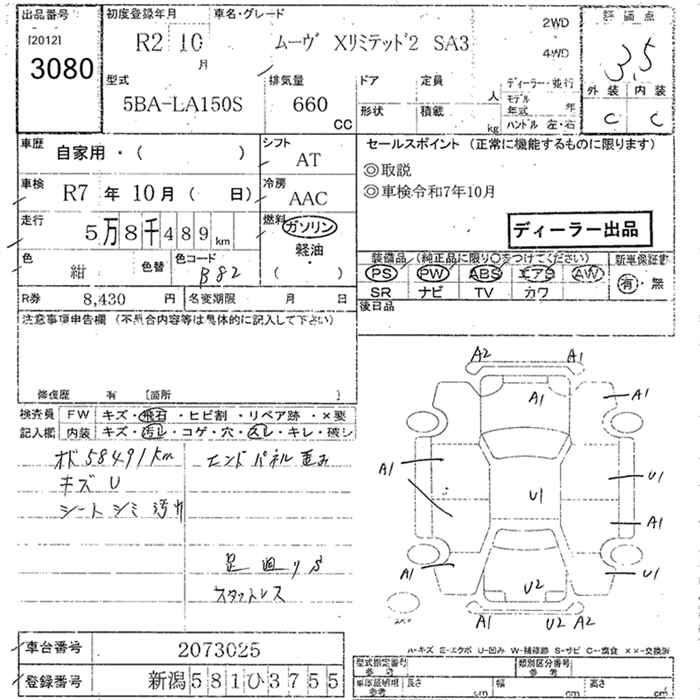 出品番号 初度登録年月 車名・グレード 2WD 評価点
[2012] R2 10 ムーヴ Xリミテッド2 SA3 4WD 3.5
3080 月
型式 排気量 ドア 定員 ディーラー・並行 外装 内装
5BA-LA150S 660 CC 形状 積載 人 kg モデル年式 年 C C
ハンドル 左・右
車歴 自家用・( ) シフト AT セールスポイント (正常に機能するものに限ります)
◎取説
車検 R7 年 10 月 ( 日) 冷房 AAC ◎車検令和7年10月
走行 5万8千489km 燃料 ガソリン ディーラー出品
軽油・
色 紺 色替 色コード B82 ( ) 装備品 (純正品に限り○をつけてください) 新車保証書
PS PW ABS エアB AW 有・無
R券 8,430 円 名変期限 月 日 SR ナビ TV カワ
注意事項申告欄 (不具合内容等は具体的に記入して下さい) 後日品
修復歴 有 [箇所 ]
検査員 FW キズ・飛石・ヒビ割・リペア跡・×要
記入欄 内装 キズ・汚れ・コゲ・穴・スレ・キレ・破レ
A2 A1
A1 A1
メ 58491km エンドパネル歪み
A1 U1
キズ U U1
シート シミ 汚れ A1
足廻りS
A1 U2 U1
スタットレス
A1 U2 A2
A-キズ E-エクボ U-凹み W-補修跡 S-サビ C-腐食 ××-交換済
車台番号 2073025
型式指定番号 参考 類別区分番号 参考
登録番号 新潟 581 ひ 3755
車体証明 参考 長さ cm 幅 cm 高さ cm